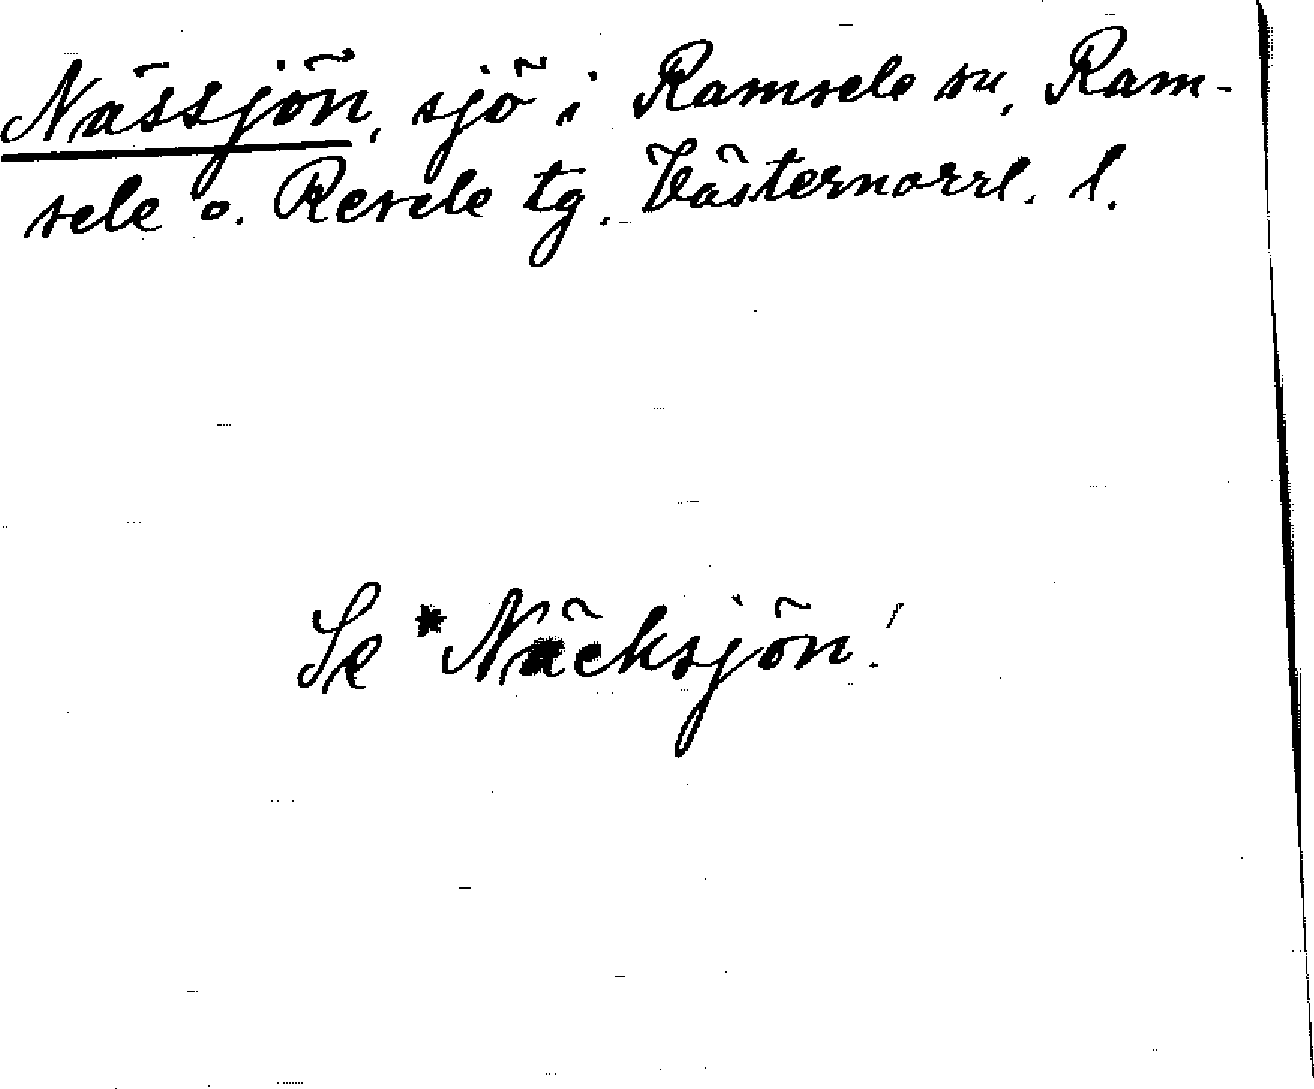 Nässjön, sjö i Ramsele sn, Ram-
sele o. Resele tg. Västernorrl. l.
Se *Näcksjön!